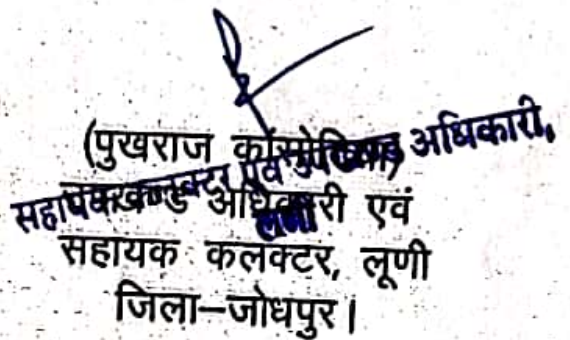 (पुखराज कोंसोटिया)
उपखण्ड अधिकारी एवं
सहायक कलक्टर, लूणी
जिला–जोधपुर।
सहायक कलक्टर एवं उपखण्ड अधिकारी,
लूणी